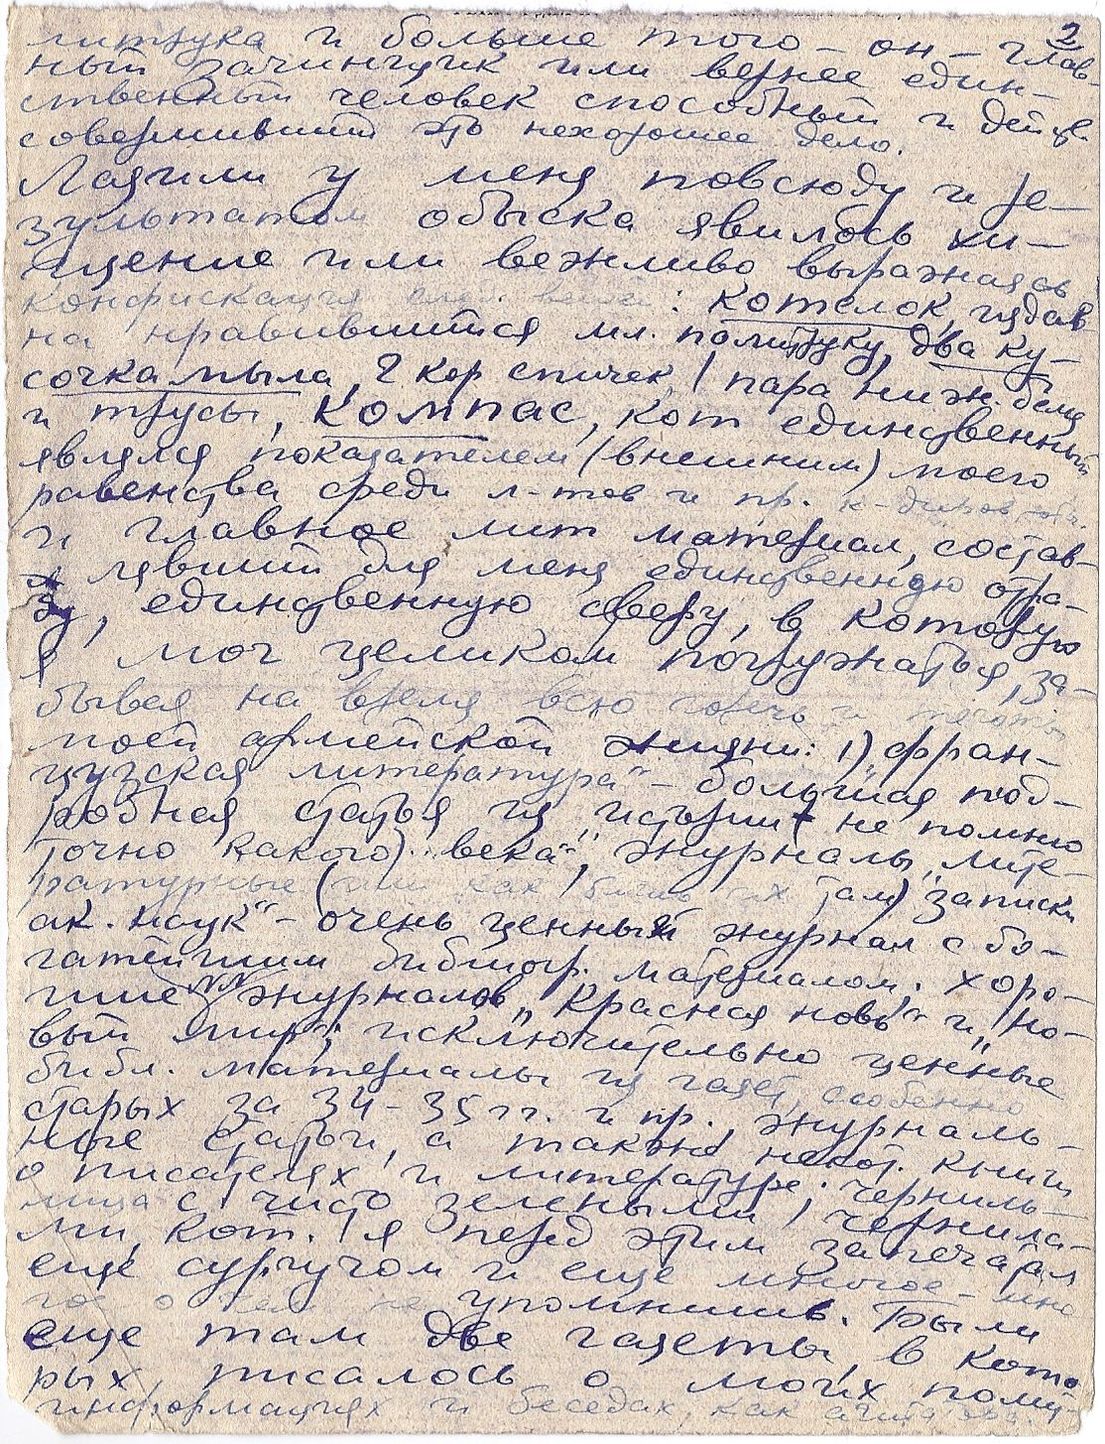 2
литрука и больше того – он – глав-
ный зачинщик или вернее един-
ственный человек способный и
совершивший это нехорошее дело.
Лазили у меня повсюду и ре-
зультатом обыска явилось хи-
щение или вежливо выражаясь
конфискация вещей: котелок, издав
на нравившийся мл. политруку, два ку-
сочка мыла, 2 кор спичек, пара ниж. белья
и трусы, компас, кот единственный
являлся показателем (внешним) моего
равенства среди л-тов и пр.
и главное лит материал, состав-
лявший для меня единственную отра-
ду, единственную сферу, в которую
я мог целиком погружаться, за-
бывая на время всю горечь и тягость
моей армейской жизни: 1) „фран-
цузская литература" – большая под-
робная статья из „истории (не помню
точно какого) века", журналы „лите-
ратурные (или как там) записки
ак. наук" – очень ценный журнал с бо-
гатейшим библиогр. материалом. хоро-
шие №№ журналов „Красная новь" и „Но-
вый мир", исключительно ценные
библ. материалы из газет, особенно
старых за 34-35 гг. и пр., журналь-
ные статьи, а также некот. книги
о писателях и литературе; черниль-
ница с чисто зелеными чернила-
ми, кот. я перед этим запечатал
еще сургучом и еще многое – мно
го о чем не упомнишь. Были
еще там две газеты, в кото
рых писалось о моих полит-
информациях и беседах, как